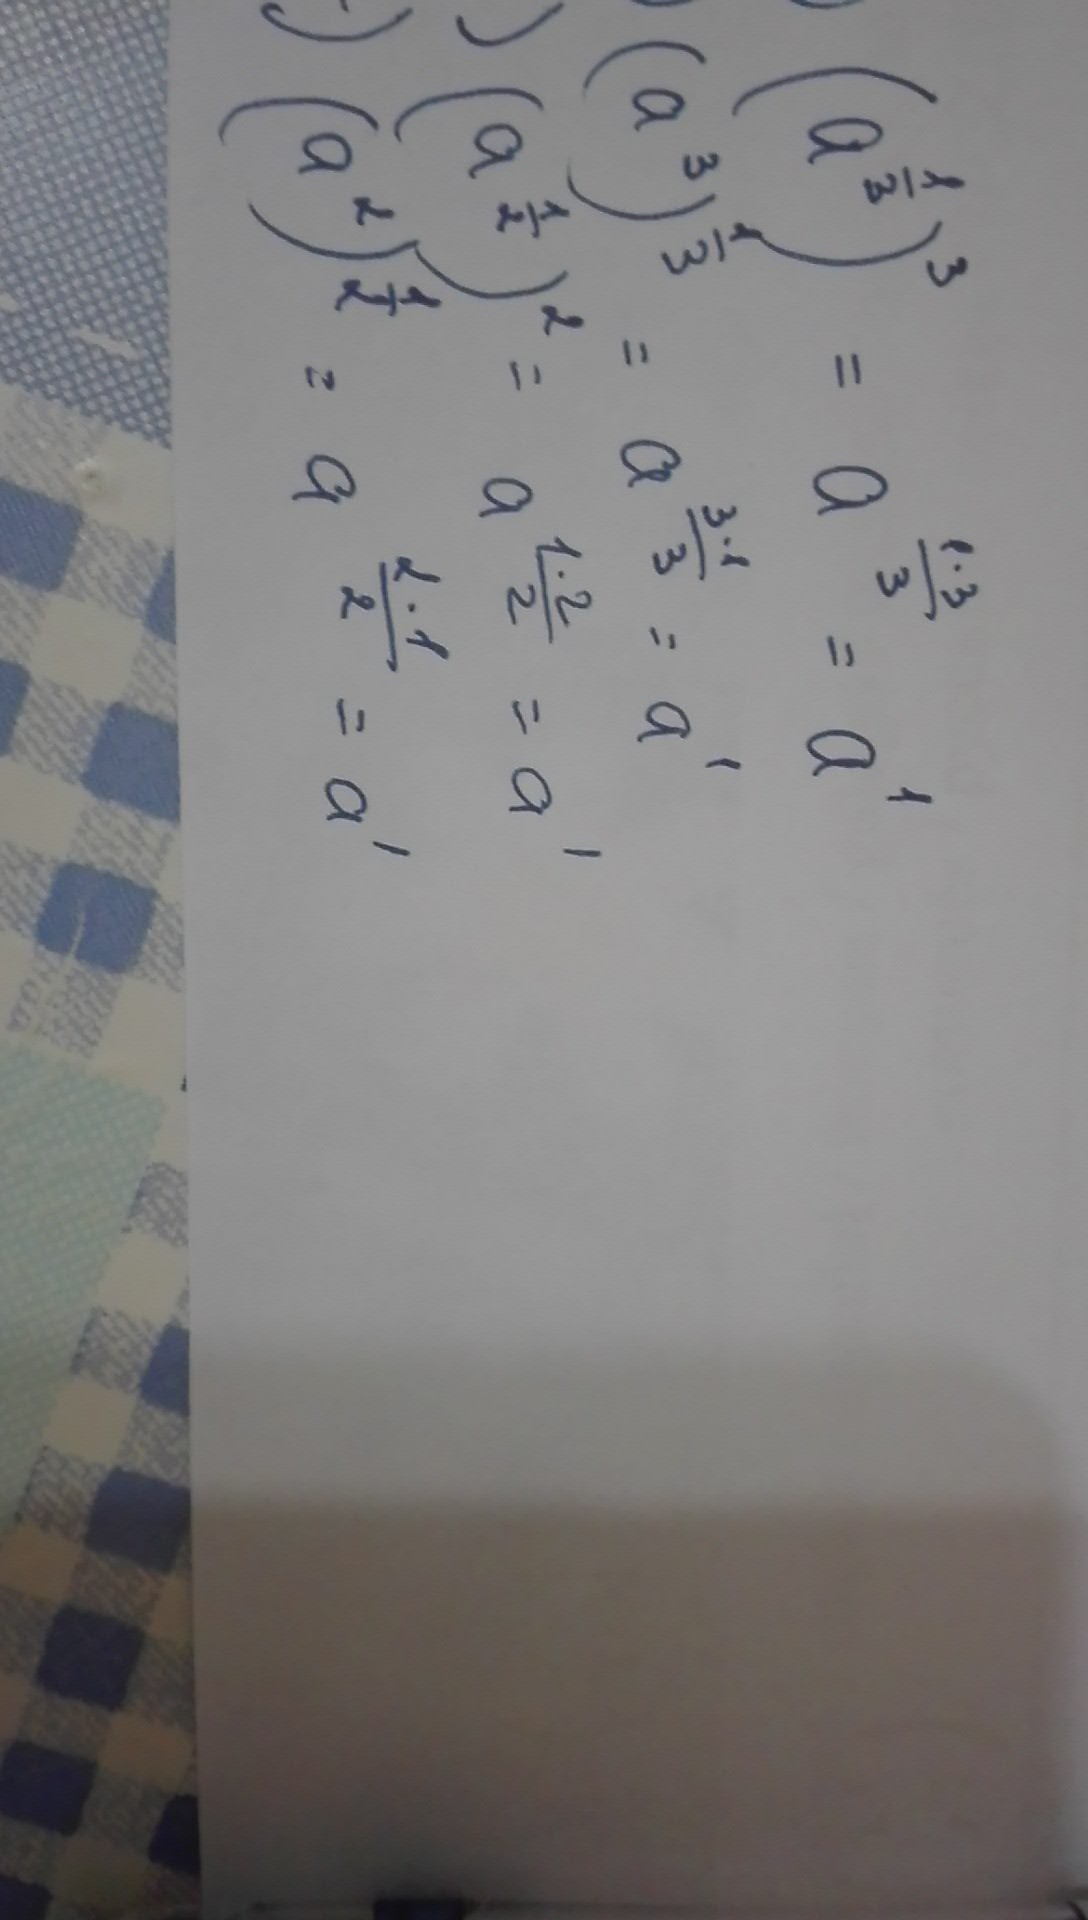 (a^{\frac{1}{3}})^3 = a^{\frac{1·3}{3}} = a^1
(a^3)^{\frac{1}{3}} = a^{\frac{3·1}{3}} = a^1
(a^{\frac{1}{2}})^2 = a^{\frac{1·2}{2}} = a^1
(a^2)^{\frac{1}{2}} = a^{\frac{2·1}{2}} = a^1